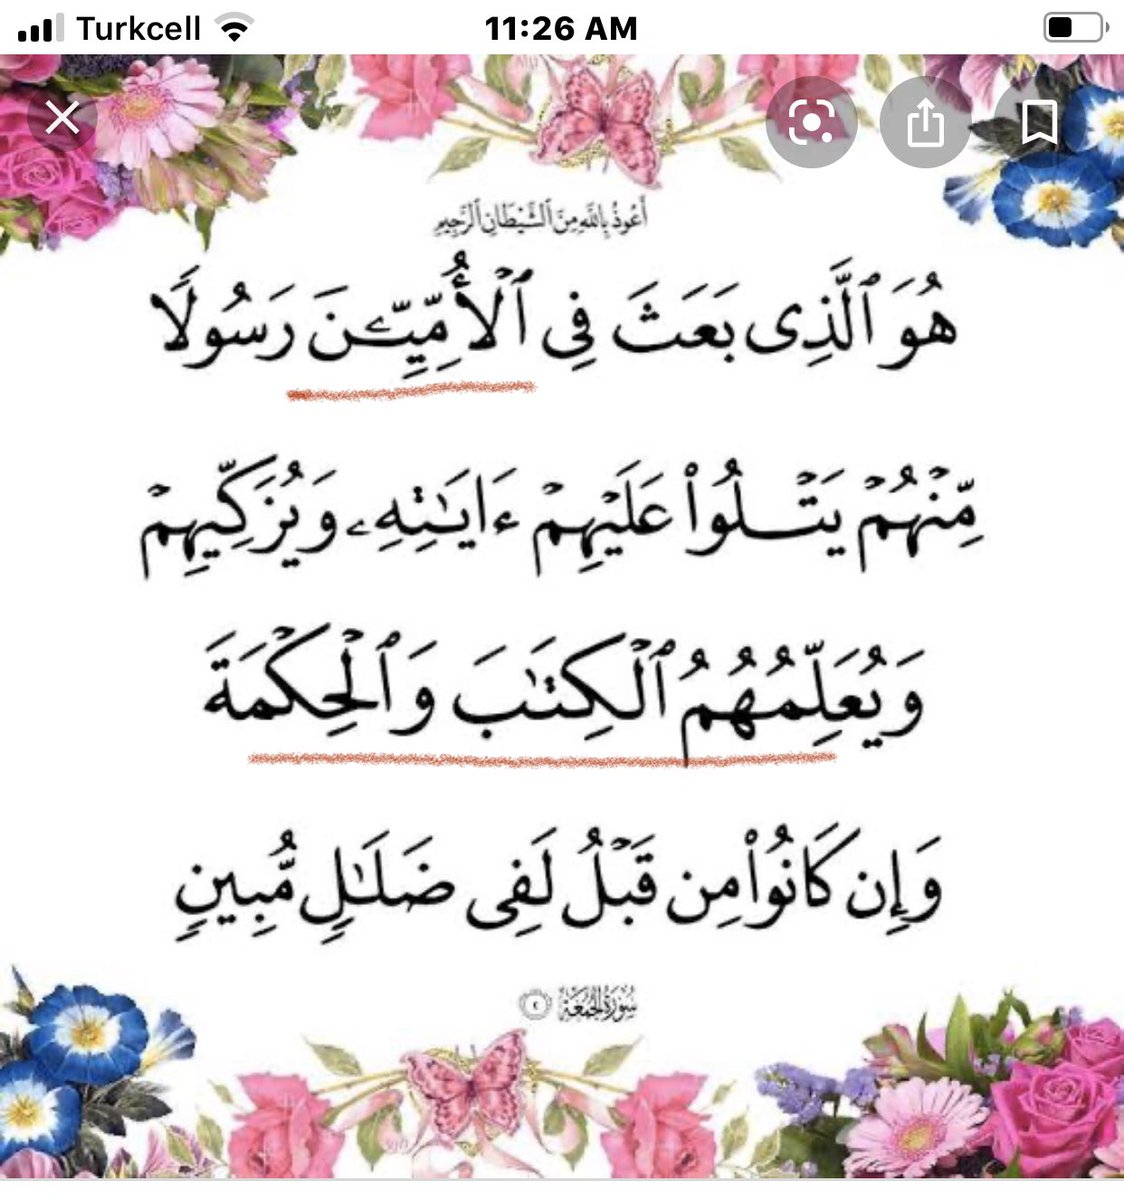 Turkcell 11:26 AM
أَعُوذُ بِٱللَّهِ مِنَ ٱلشَّيْطَانِ ٱلرَّجِيمِ
هُوَ ٱلَّذِى بَعَثَ فِى ٱلْأُمِّيِّـۧنَ رَسُولًا
مِّنْهُمْ يَتْلُوا۟ عَلَيْهِمْ ءَايَـٰتِهِۦ وَيُزَكِّيهِمْ
وَيُعَلِّمُهُمُ ٱلْكِتَـٰبَ وَٱلْحِكْمَةَ
وَإِن كَانُوا۟ مِن قَبْلُ لَفِى ضَلَـٰلٍ مُّبِينٍ
سُورَةُ الجُمُعَة ٢